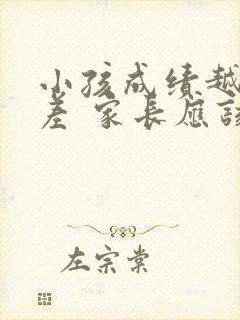 小孩成绩越
差 家長應該
左宗棠